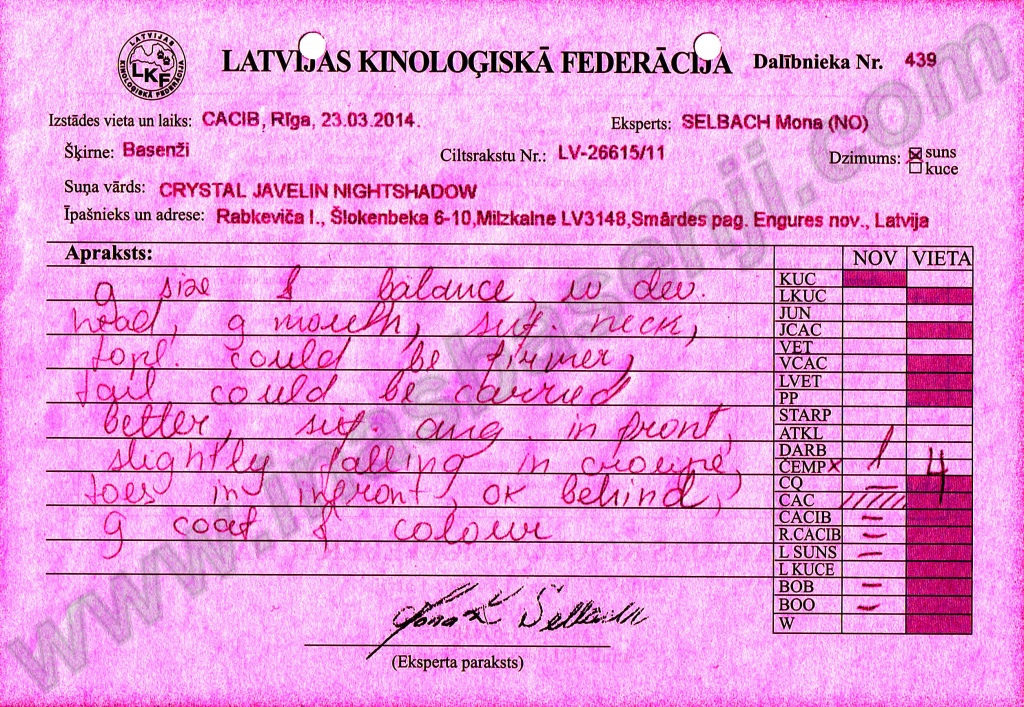 LATVIJAS KINOLOĢISKĀ FEDERĀCIJA
LKF
LATVIJAS KINOLOĢISKĀ FEDERĀCIJA Dalībnieka Nr. 439
Izstādes vieta un laiks: CACIB, Rīga, 23.03.2014. Eksperts: SELBACH Mona (NO)
Šķirne: Basenži Ciltsrakstu Nr.: LV-26615/11 Dzimums: ☒ suns
☐ kuce
Suņa vārds: CRYSTAL JAVELIN NIGHTSHADOW
Īpašnieks un adrese: Rabkeviča I., Šlokenbeka 6-10,Milzkalne LV3148,Smārdes pag. Engures nov., Latvija
Apraksts:
g size & balance, w dev.
head, g mouth, suf. neck,
topl. could be firmer,
tail could be carried
better, suf. ang. in front,
slightly falling in croupe,
toes in infront, ok behind,
g coat & colour
NOV VIETA
KUC
LKUC
JUN
JCAC
VET
VCAC
LVET
PP
STARP
ATKL
DARB
ČEMP x 1 4
CQ –
CAC
CACIB –
R.CACIB –
L SUNS –
L KUCE
BOB –
BOO –
W
Mona Selbach
(Eksperta paraksts)
www.irinasbasenji.com